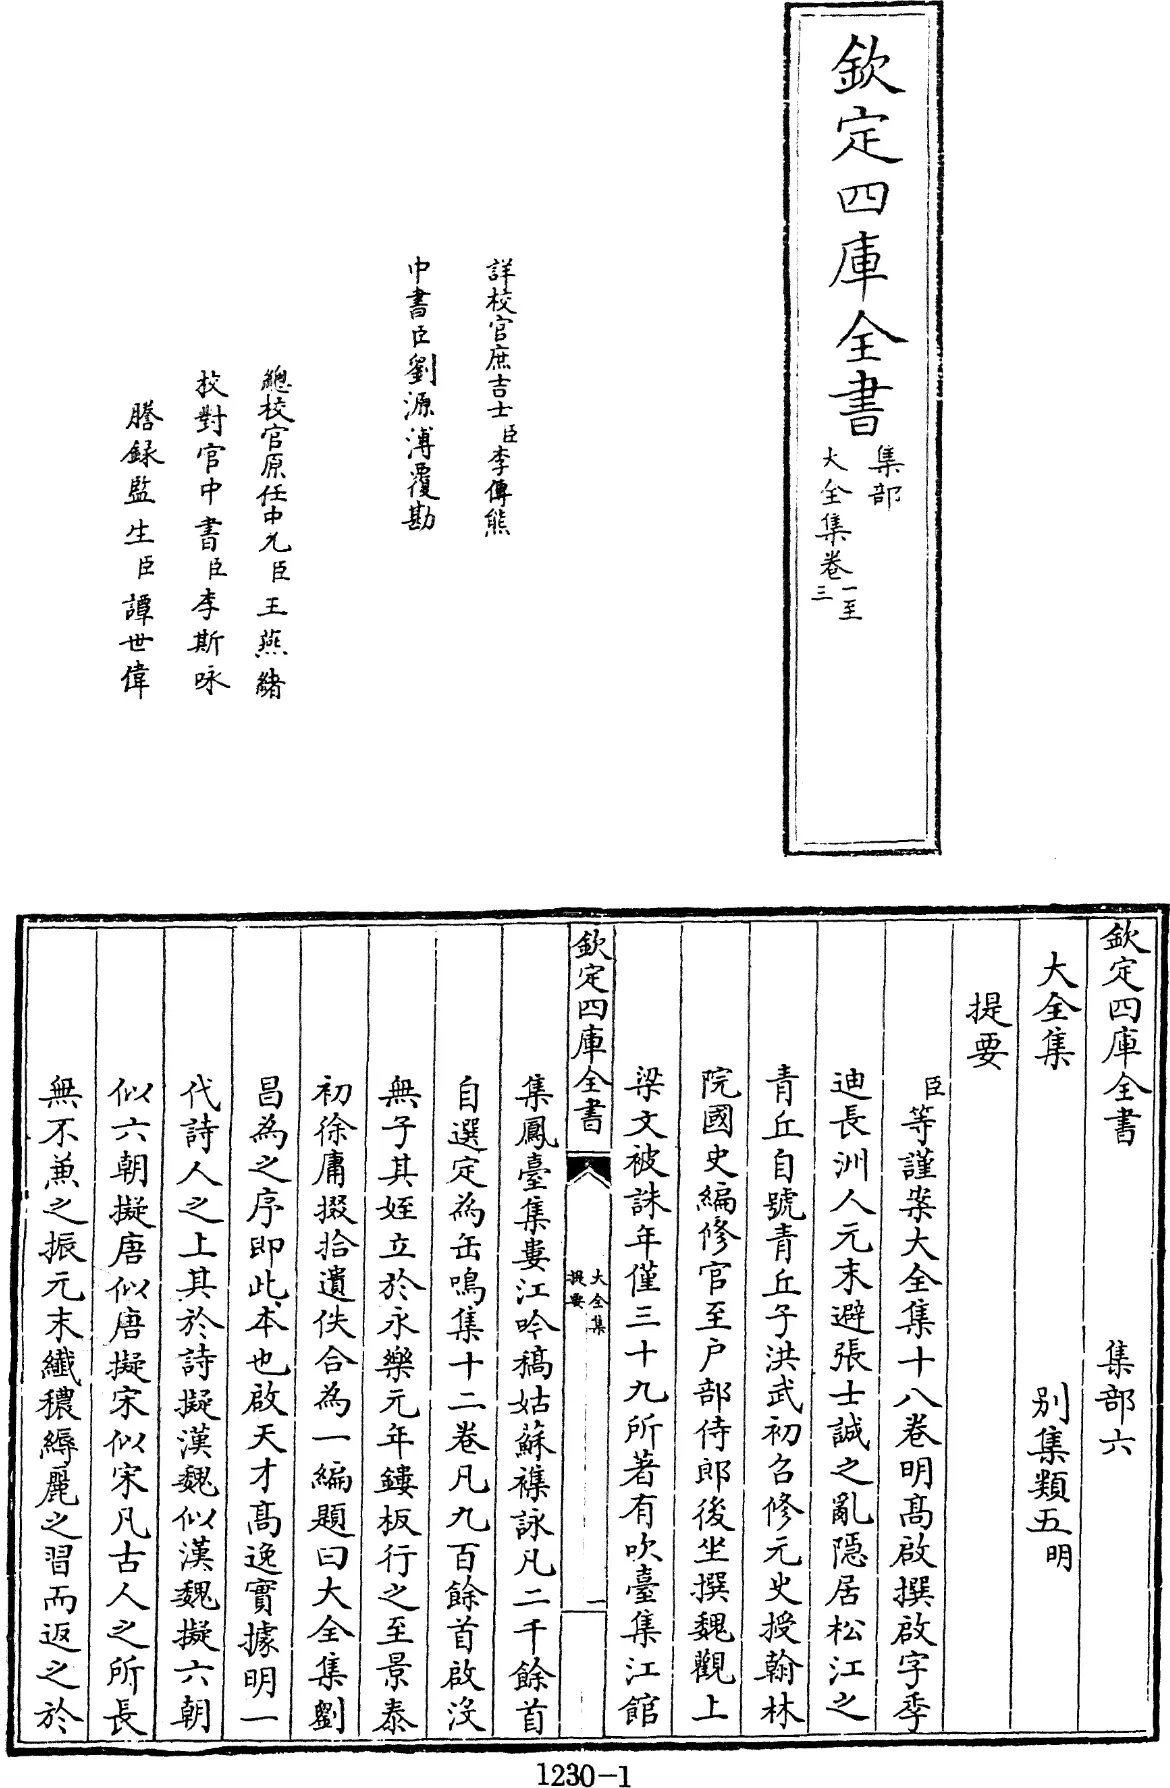 欽定四庫全書
集部
大全集卷一至三
詳校官庶吉士臣李傳熊
中書臣劉源溥覆勘
總校官原任中允臣王燕緒
校對官中書臣李斯咏
謄錄監生臣譚世偉
欽定四庫全書 集部六
大全集 别集類五明
提要
臣等謹案大全集十八卷明髙啟撰啟字季
迪長洲人元末避張士誠之亂隱居松江之
青丘自號青丘子洪武初召修元史授翰林
院國史編修官至户部侍郎後坐撰魏觀上
梁文被誅年僅三十九所著有吹臺集江館
欽定四庫全書 大全集提要 一
集鳳臺集婁江吟稿姑蘇襍詠凡二千餘首
自選定為缶鳴集十二卷凡九百餘首啟沒
無子其姪立於永樂元年鏤板行之至景泰
初徐庸掇拾遺佚合為一編題曰大全集劉
昌為之序即此本也啟天才髙逸實據明一
代詩人之上其於詩擬漢魏似漢魏擬六朝
似六朝擬唐似唐擬宋似宋凡古人之所長
無不兼之振元末纖穠縟麗之習而返之於
1230-1